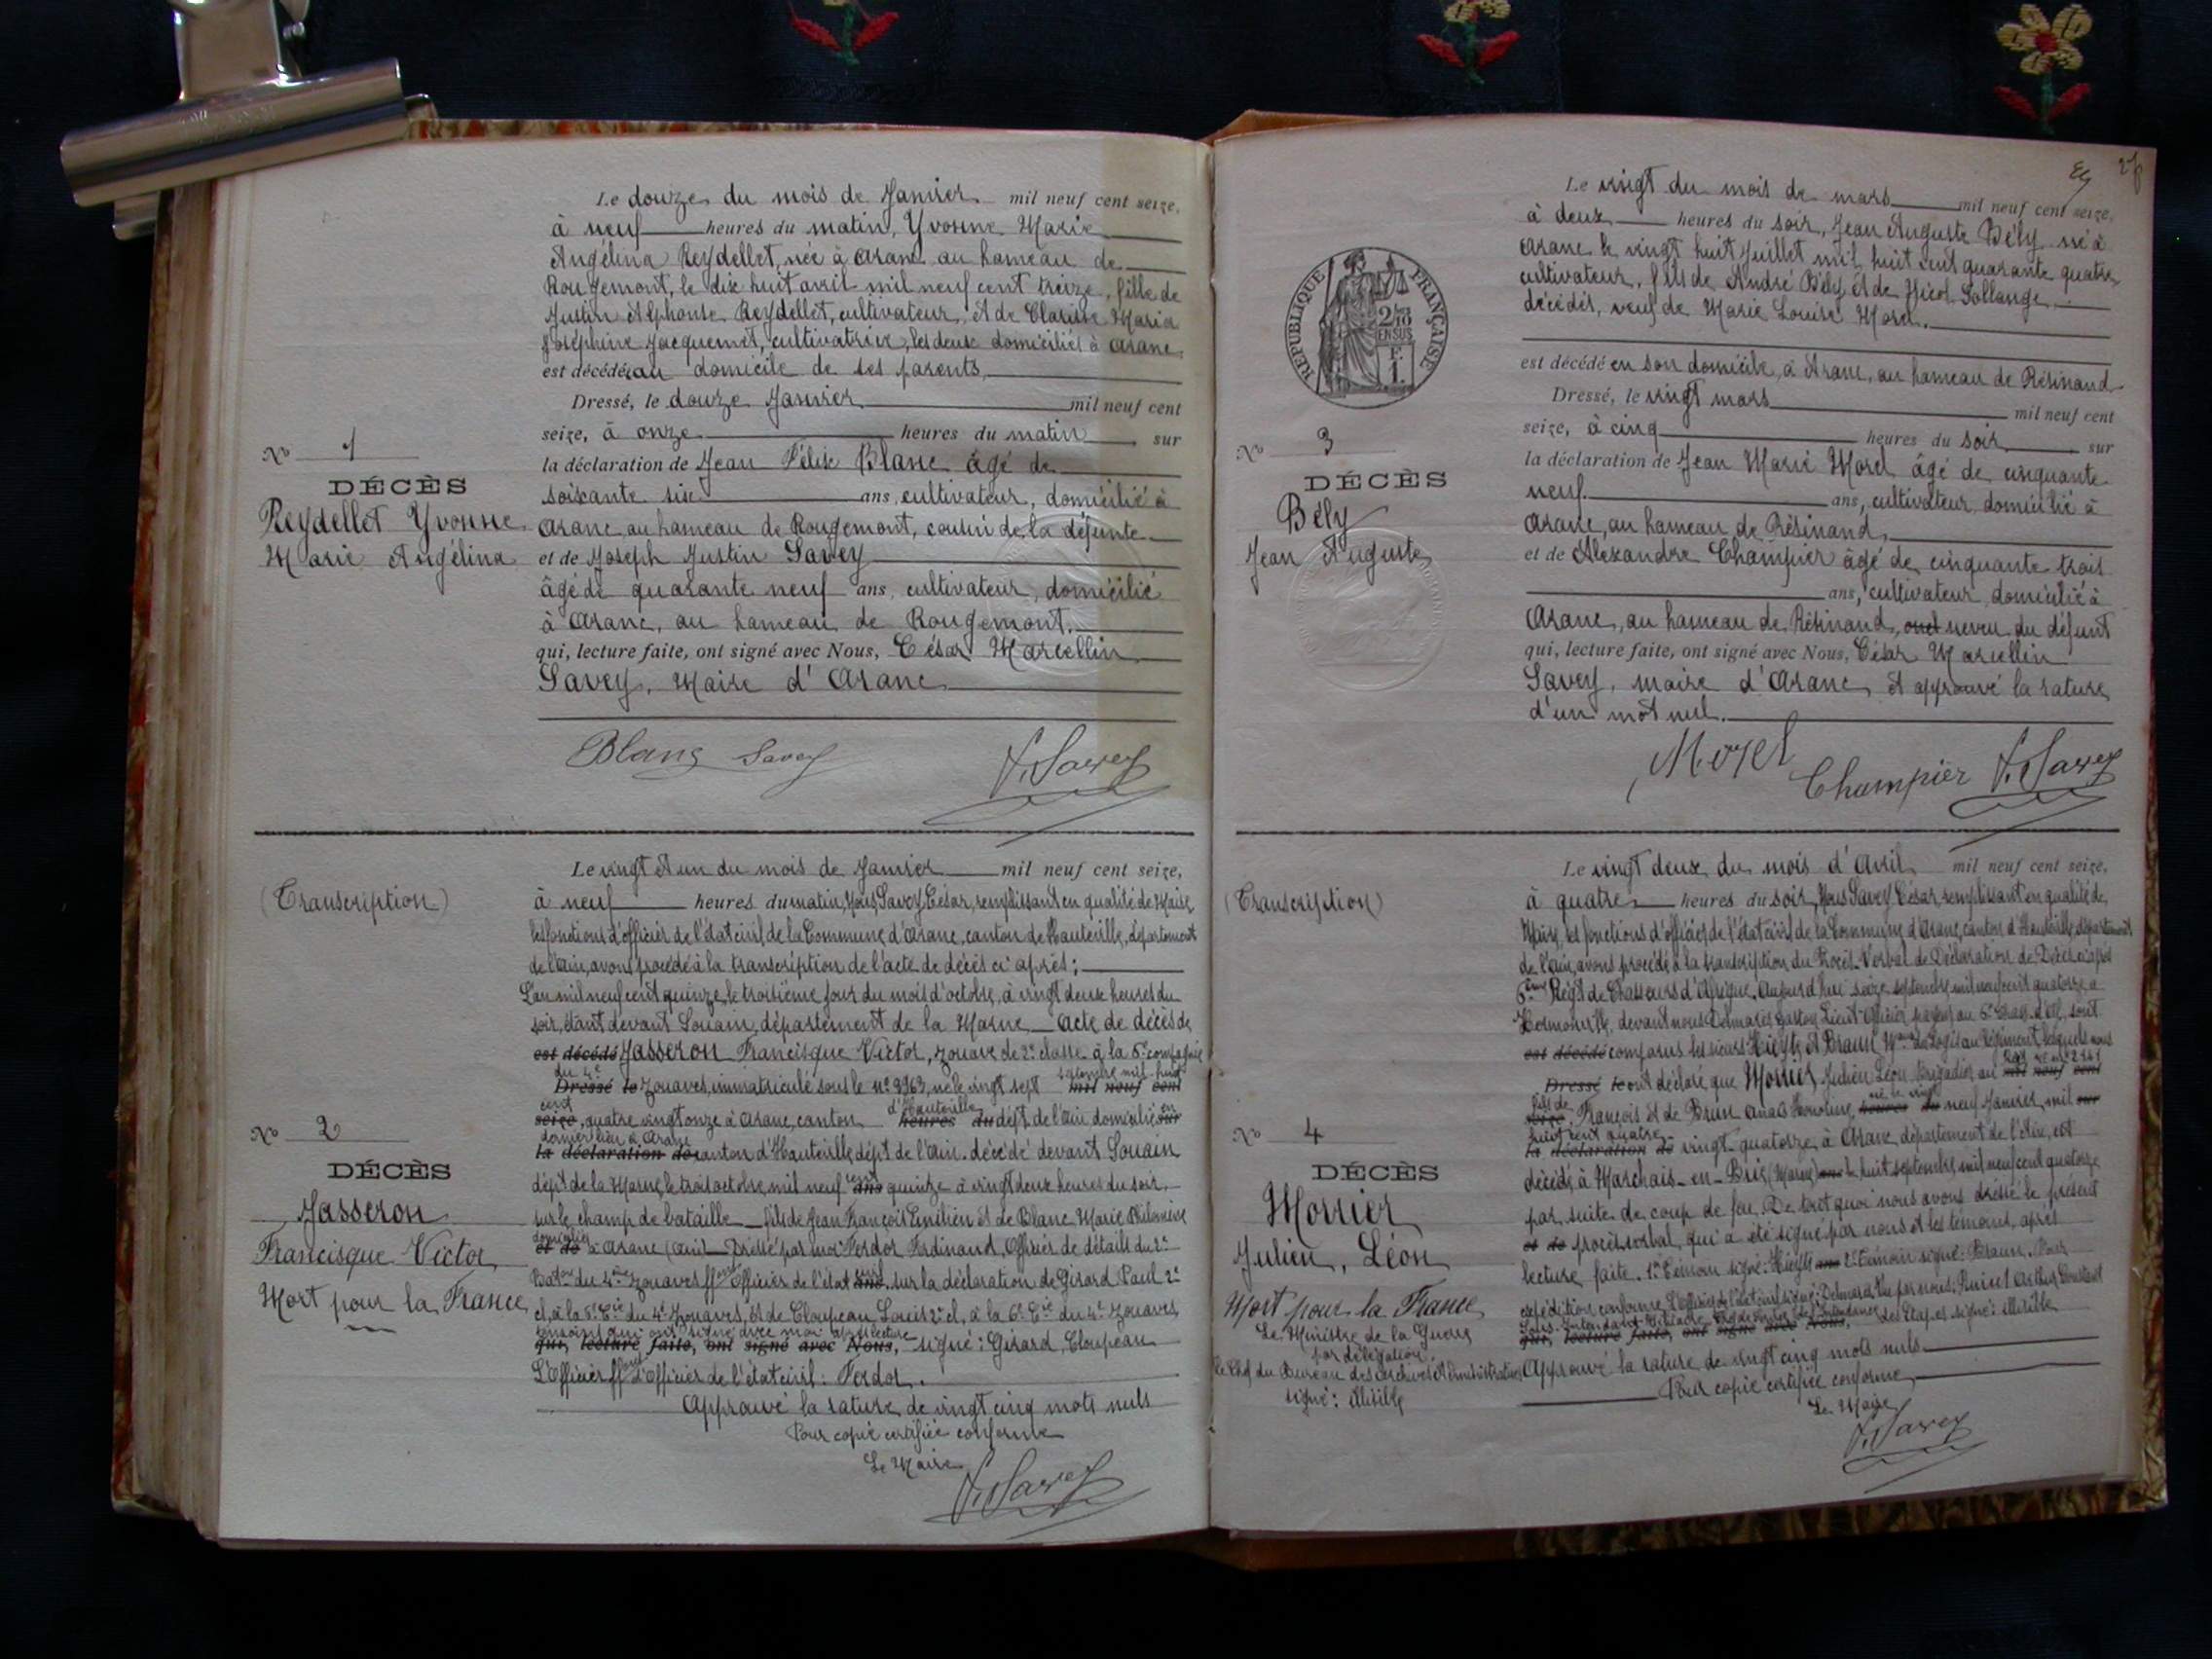 Le douze du mois de Janvier mil neuf cent seize,
à neuf heures du matin, Yvonne Marie
Angélina Reydellet, née à Aranc au hameau de
Rougemont, le dix huit avril mil neuf cent treize, fille de
Justin Alphonse Reydellet, cultivateur, et de Clarisse Maria
Joséphine Jacquemet, cultivatrice, les deux domiciliés à Aranc,
est décédée au domicile de ses parents.
Dressé, le douze Janvier mil neuf cent
seize, à onze heures du matin, sur
la déclaration de Jean Félix Blanc âgé de
soixante six ans, cultivateur, domicilié à
Aranc, au hameau de Rougemont, cousin de la défunte
et de Joseph Justin Savey
âgé de quarante neuf ans, cultivateur, domicilié
à Aranc, au hameau de Rougemont.
qui, lecture faite, ont signé avec Nous, César Marcellin
Savey, Maire d'Aranc
Blanc Savey Savey
No 1
DÉCÈS
Reydellet Yvonne
Marie Angélina
(Transcription)
Le vingt et un du mois de Janvier mil neuf cent seize,
à neuf heures du matin, Nous Savey César, remplissant en qualité de Maire
les fonctions d'officier de l'état civil de la Commune d'Aranc, canton de Hauteville, département
de l'Ain, avons procédé à la transcription de l'acte de décès ci après :
L'an mil neuf cent quinze, le troisième jour du mois d'octobre, à vingt deux heures du
soir, étant devant Souain, département de la Marne — Acte de décès de
est décédé Jasseron Francisque Victor, zouave de 2e classe à la 6e compagnie
du 4e
Dressé le Zouaves, immatriculé sous le no 9963, né le vingt sept septembre mil huit mil neuf cent
cent
seize, quatre vingt onze à Aranc, canton d'Hauteville heures du dépt de l'Ain domicilié en sur
dernier lieu à Aranc
la déclaration de canton d'Hauteville dépt de l'Ain. décédé devant Souain
dépt de la Marne, le trois octobre, mil neuf cent ans quinze à vingt deux heures du soir,
sur le champ de bataille — fils de Jean François Emilien et de Blanc Marie Philomène
domiciliés
et de à Aranc (Ain) — Dressé par moi Ferdor Ferdinand, Officier de détails du 2e
Baton du 4ème Zouaves ffont Officier de l'état civil ans, sur la déclaration de Girard Paul 2e
cl, à la 6e Cie du 4e Zouaves, et de Cloupeau Louis 2e cl, à la 6e Cie du 4e Zouaves
témoins qui ont signé avec moi après lecture
qui, lecture faite, ont signé avec Nous, signé : Girard, Cloupeau
L'Officier ffont d'Officier de l'état civil : Ferdor.
Approuvé la rature de vingt cinq mots nuls
Pour copie certifiée conforme
Le Maire
Savey
No 2
DÉCÈS
Jasseron
Francisque Victor
Mort pour la France
27
RÉPUBLIQUE FRANÇAISE
2/10
EN SUS
F.
1.
Le vingt du mois de mars mil neuf cent seize,
à deux heures du soir, Jean Auguste Bély, né à
Aranc le vingt huit Juillet mil huit cent quarante quatre,
cultivateur, fils de André Bély et de Nicol Sollange,
décédés, veuf de Marie Louise Morel.
est décédé en son domicile, à Aranc, au hameau de Résinand
Dressé, le vingt mars mil neuf cent
seize, à cinq heures du soir, sur
la déclaration de Jean Marie Morel âgé de cinquante
neuf ans, cultivateur domicilié à
Aranc, au hameau de Résinand,
et de Alexandre Champier âgé de cinquante trois
ans, cultivateur domicilié à
Aranc, au hameau de Résinand, neveu du défunt
qui, lecture faite, ont signé avec Nous, César Marcellin
Savey, maire d'Aranc, et approuvé la rature
d'un mot nul.
Morel Champier Savey
No 3
DÉCÈS
Bély
Jean Auguste
(Transcription)
Le vingt deux du mois d'Avril mil neuf cent seize,
à quatre heures du soir, Nous Savey César remplissant en qualité de
Maire, les fonctions d'officier de l'état civil de la Commune d'Aranc, canton d'Hauteville département
de l'Ain, avons procédé à la transcription du Procès-Verbal de Déclaration de Décès ci après
Régt de Chasseurs d'Afrique. Aujourd'hui seize septembre mil neuf cent quatorze à
Hermonville, devant nous Gaston Lieut officier payeur au sont
est décédé comparus les sieurs et Braun au Régiment, lesquels nous
Dressé le ont déclaré que Morrier Julien Léon brigadier au mil neuf cent
fils de
seize, François et de Brun Anaïs né le vingt heures du neuf Janvier mil sur
huit cent quatre
la déclaration de vingt quatorze à Aranc, département de l'Ain, est
décédé à Marchais-en-Brie (Marne) ans le huit septembre mil neuf cent quatorze
par suite de coup de feu. De tout quoi nous avons dressé le présent
et de procès verbal, qui a été signé par nous et les témoins, après
lecture faite. 1er témoin signé : ans 2e témoin signé : Braun. Pour
expédition conforme L'officier de l'état civil signé : Vu par nous
qui, lecture faite, ont signé avec Nous, des Etapes signé : illisible
Approuvé la rature de vingt cinq mots nuls
Pour copie certifiée conforme,
Le Maire
Savey
No 4
DÉCÈS
Morrier
Julien, Léon
Mort pour la France
Le Ministre de la Guerre
par délégation.
Le Chef du Bureau des Archives Administratives
signé : illisible